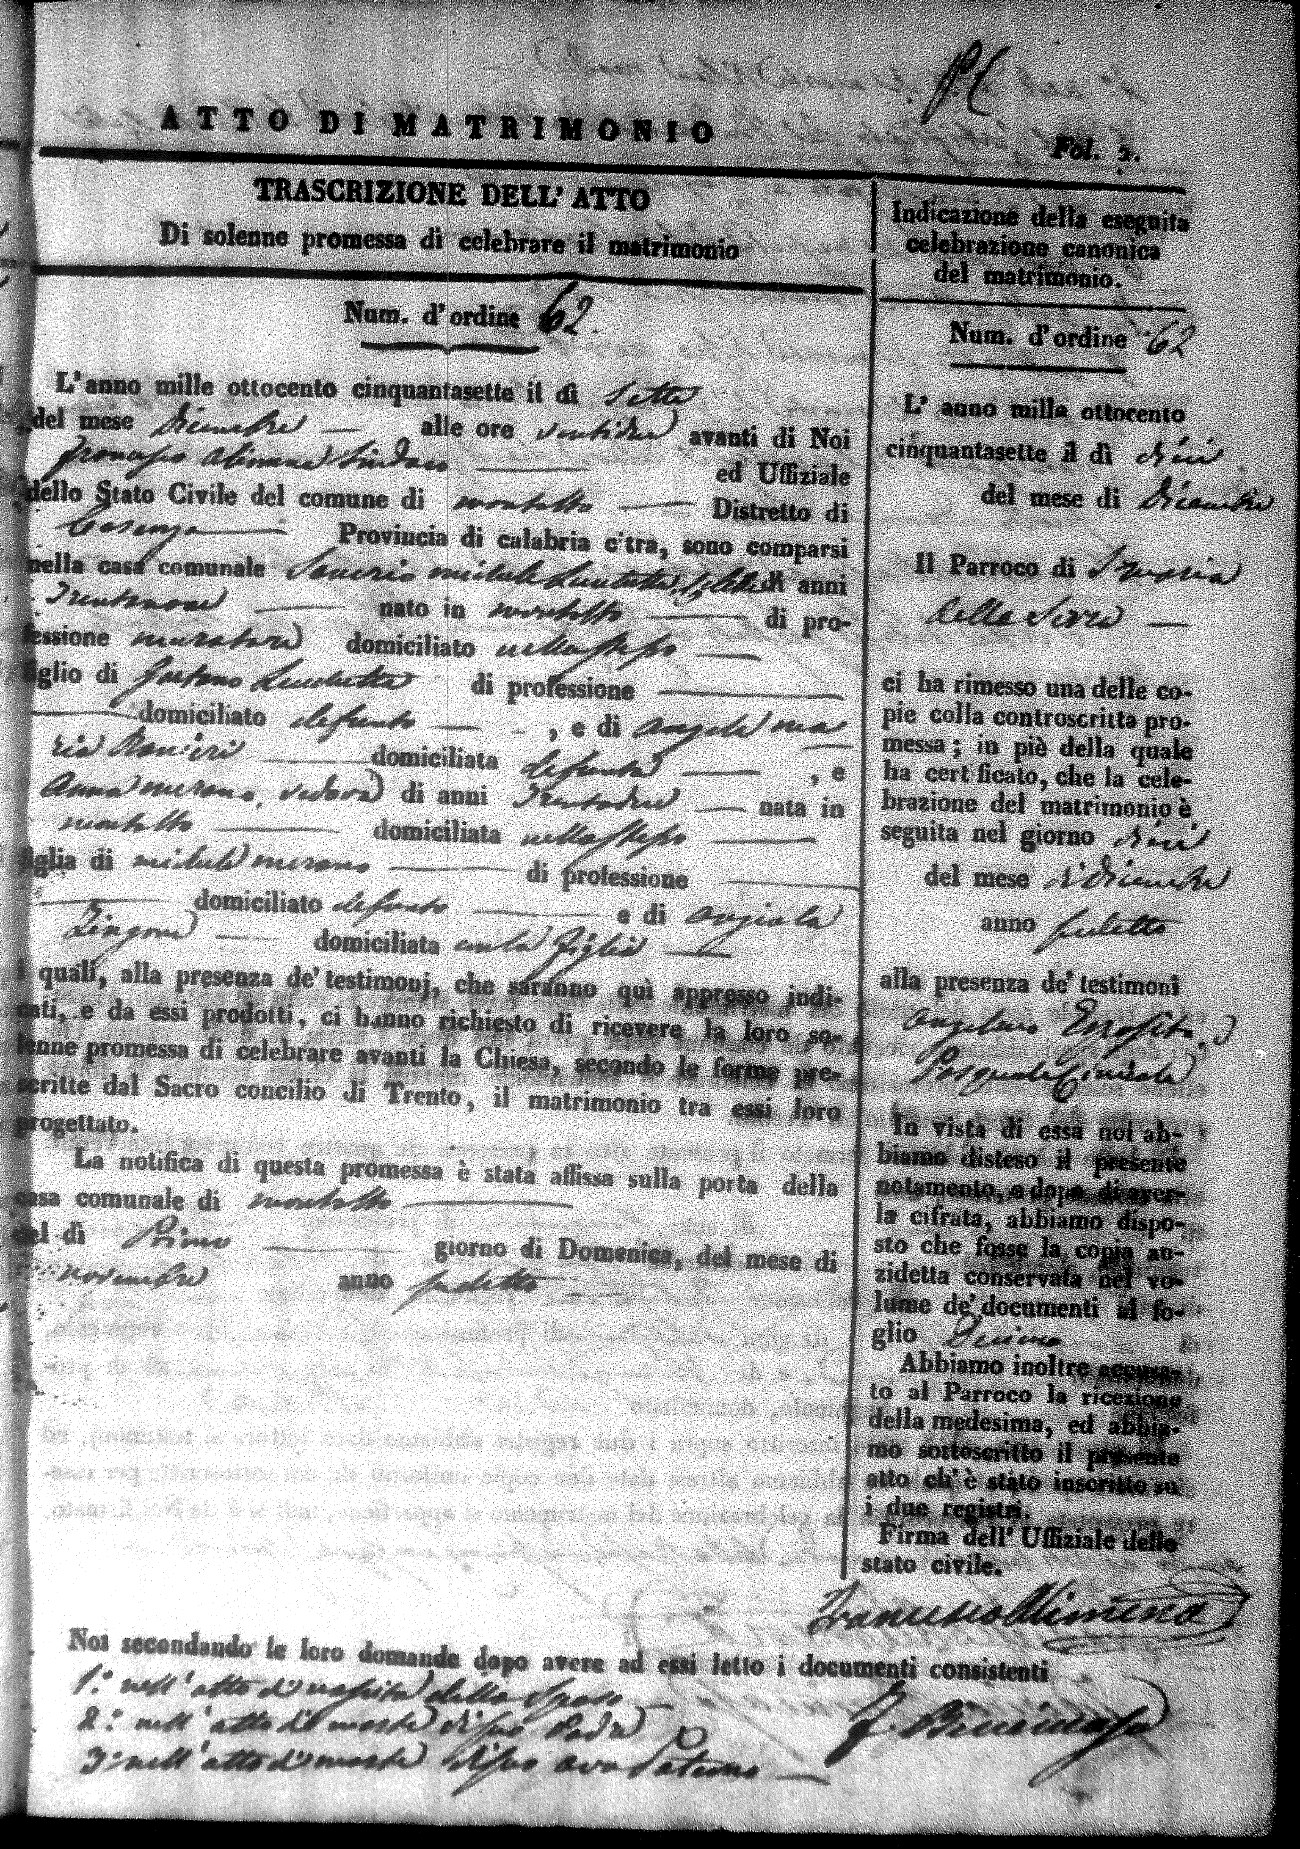 P. C.
ATTO DI MATRIMONIO
Fol. 2.
TRASCRIZIONE DELL' ATTO
Di solenne promessa di celebrare il matrimonio
Num. d' ordine 62.
L' anno mille ottocento cinquantasette il dì sette
del mese Dicembre — alle ore ventidue avanti di Noi
Francesco Alimena Sindaco — ed Uffiziale
dello Stato Civile del comune di montalto — Distretto di
Cosenza — Provincia di calabria citra, sono comparsi
nella casa comunale Saverio michele Lucchetta, di anni
Trentanove — nato in montalto — di pro-
fessione muratore domiciliato nello stesso —
figlio di Gaetano Lucchetta di professione —
— domiciliato defunto — , e di Angela ma
ria Ranieri — domiciliata defunta — , e
Anna merano, vedova di anni Trentadue — nata in
montalto — domiciliata nello stesso —
figlia di michele merano — di professione —
— domiciliato defunto — e di Angiola
Zingone — domiciliata colla figlia —
i quali, alla presenza de' testimonj, che saranno quì appresso indi-
cati, e da essi prodotti, ci hanno richiesto di ricevere la loro so-
lenne promessa di celebrare avanti la Chiesa, secondo le forme pre-
scritte dal Sacro concilio di Trento, il matrimonio tra essi loro
progettato.
La notifica di questa promessa è stata affissa sulla porta della
casa comunale di montalto —
nel dì Primo — giorno di Domenica, del mese di
novembre anno suddetto
Indicazione della eseguita
celebrazione canonica
del matrimonio.
Num. d' ordine 62
L' anno mille ottocento
cinquantasette il dì dieci
del mese di Dicembre
Il Parroco di
della Serra —
ci ha rimesso una delle co-
pie colla controscritta pro-
messa; in piè della quale
ha certificato, che la cele-
brazione del matrimonio è
seguita nel giorno dieci
del mese di Dicembre
anno suddetto
alla presenza de' testimoni
Angelano Esposito, e
Pasquale
In vista di essa noi ab-
biamo disteso il presente
notamento, e dopo di aver-
la cifrata, abbiamo dispo-
sto che fosse la copia an-
zidetta conservata nel vo-
lume de' documenti al fo-
glio Primo
Abbiamo inoltre accusa-
to al Parroco la ricezione
della medesima, ed abbia-
mo sottoscritto il presente
atto ch' è stato inscritto su
i due registri.
Firma dell' Uffiziale dello
stato civile.
Francesco Alimena
Noi secondando le loro domande dopo avere ad essi letto i documenti consistenti
1.° nell' atto di nascita dello Sposo —
2.° nell' atto di morte di suo Padre
3.° nell' atto di morte di suo avo Paterno —